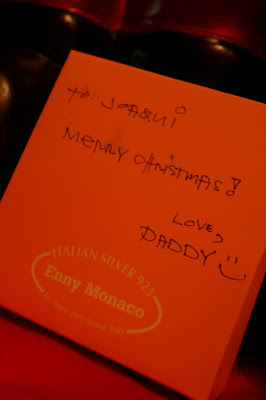 to: JOAQUI
MERRY CHRISTMAS!
LOVE,
DADDY
ITALIAN SILVER 925
Enny Monaco